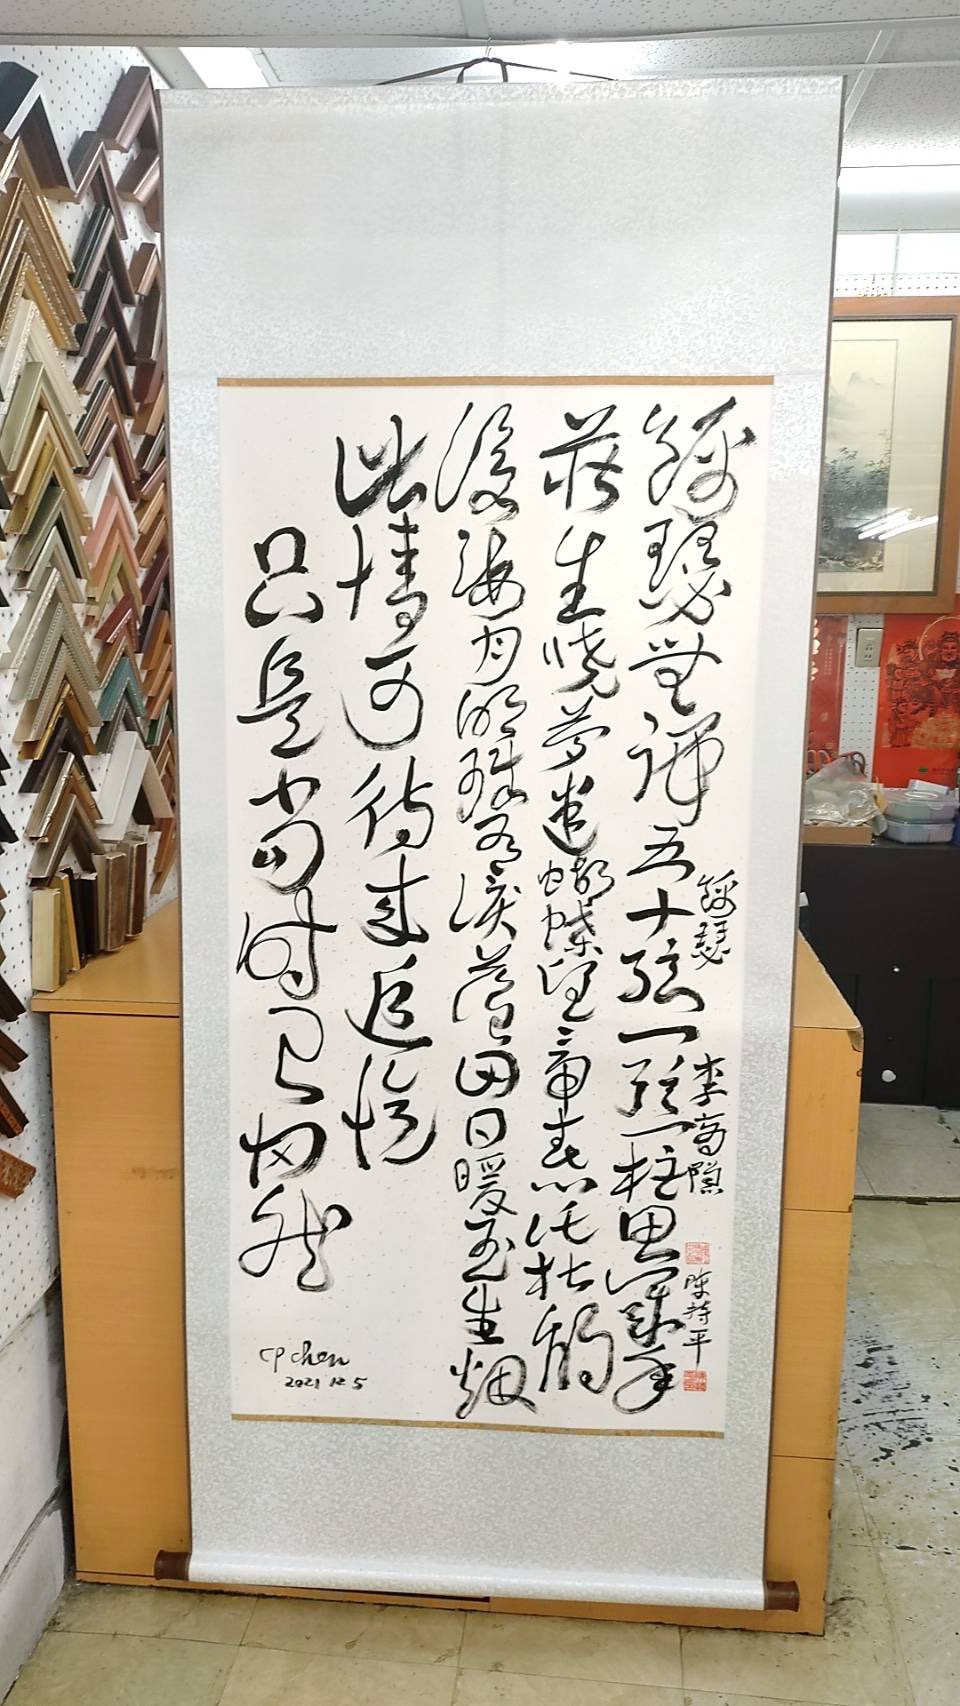 錦瑟無端五十弦一弦一柱思華年
莊生曉夢迷蝴蝶望帝春心託杜鵑
滄海月明珠有淚藍田日暖玉生烟
此情可待成追憶
只是當時已惘然
錦瑟 李商隱 陳持平
CP chen
2021 12 5